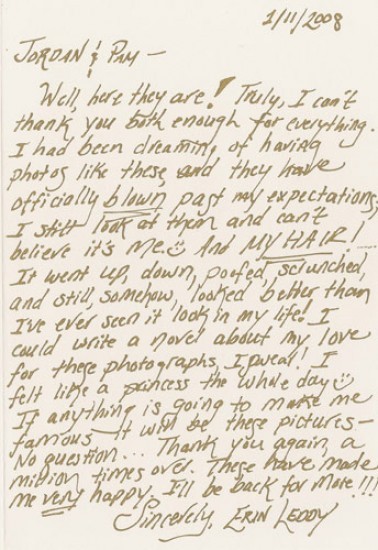 1/11/2008
JORDAN & PAM —
Well, here they are! Truly, I can't
thank you both enough for everything.
I had been dreaming of having
photos like these, and they have
officially blown past my expectations,
I still look at them and can't
believe it's me.☺ And MY HAIR!
It went up, down, poofed, scrunched,
and still, somehow, looked better than
I've ever seen it look in my life! I
could write a novel about my love
for these photographs, I swear! I
felt like a princess the whole day☺
If anything is going to make me
famous— it will be these pictures—
No question... Thank you again, a
million times over. These have made
me very happy. I'll be back for more!!!
Sincerely, ERIN LEDDY